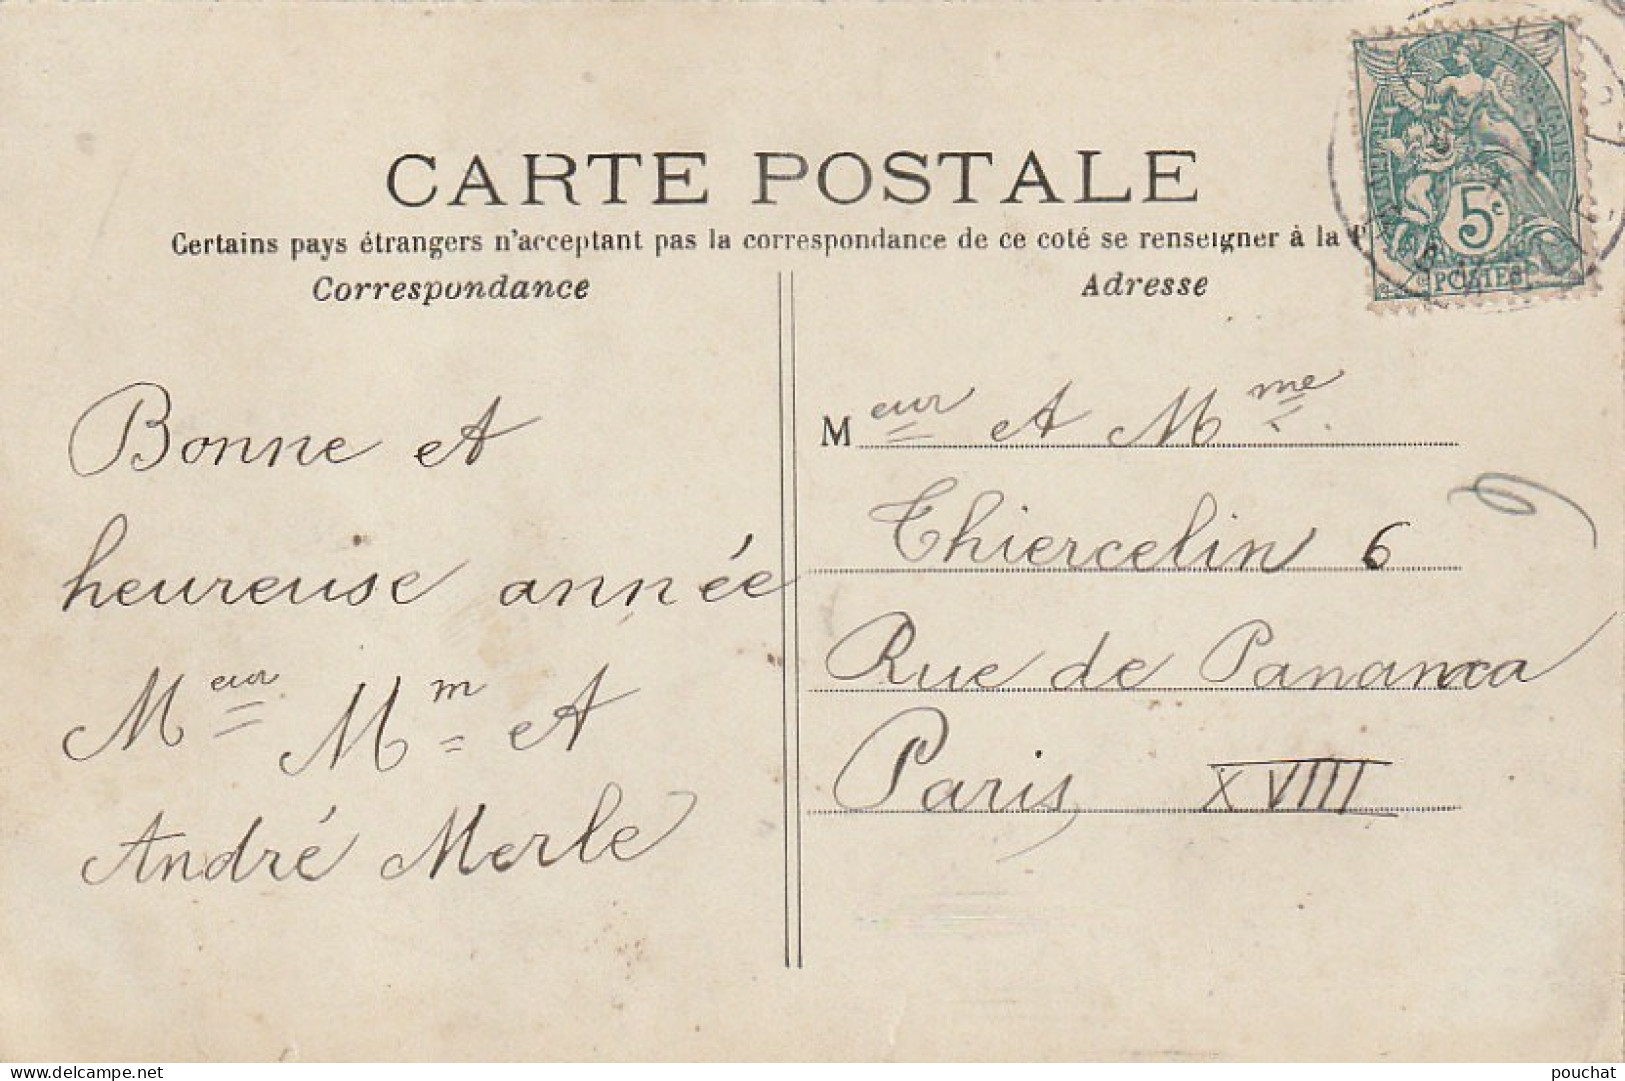 CARTE POSTALE
Certains pays étrangers n'acceptant pas la correspondance de ce coté se renseigner à la P
Correspondance
Adresse
Bonne et
heureuse année
Meur Mm et
André Merle
Meur et Mme
Thiercelin 6
Rue de Panama
Paris XVIII
5c
POSTES
www.delcampe.net
pouchat